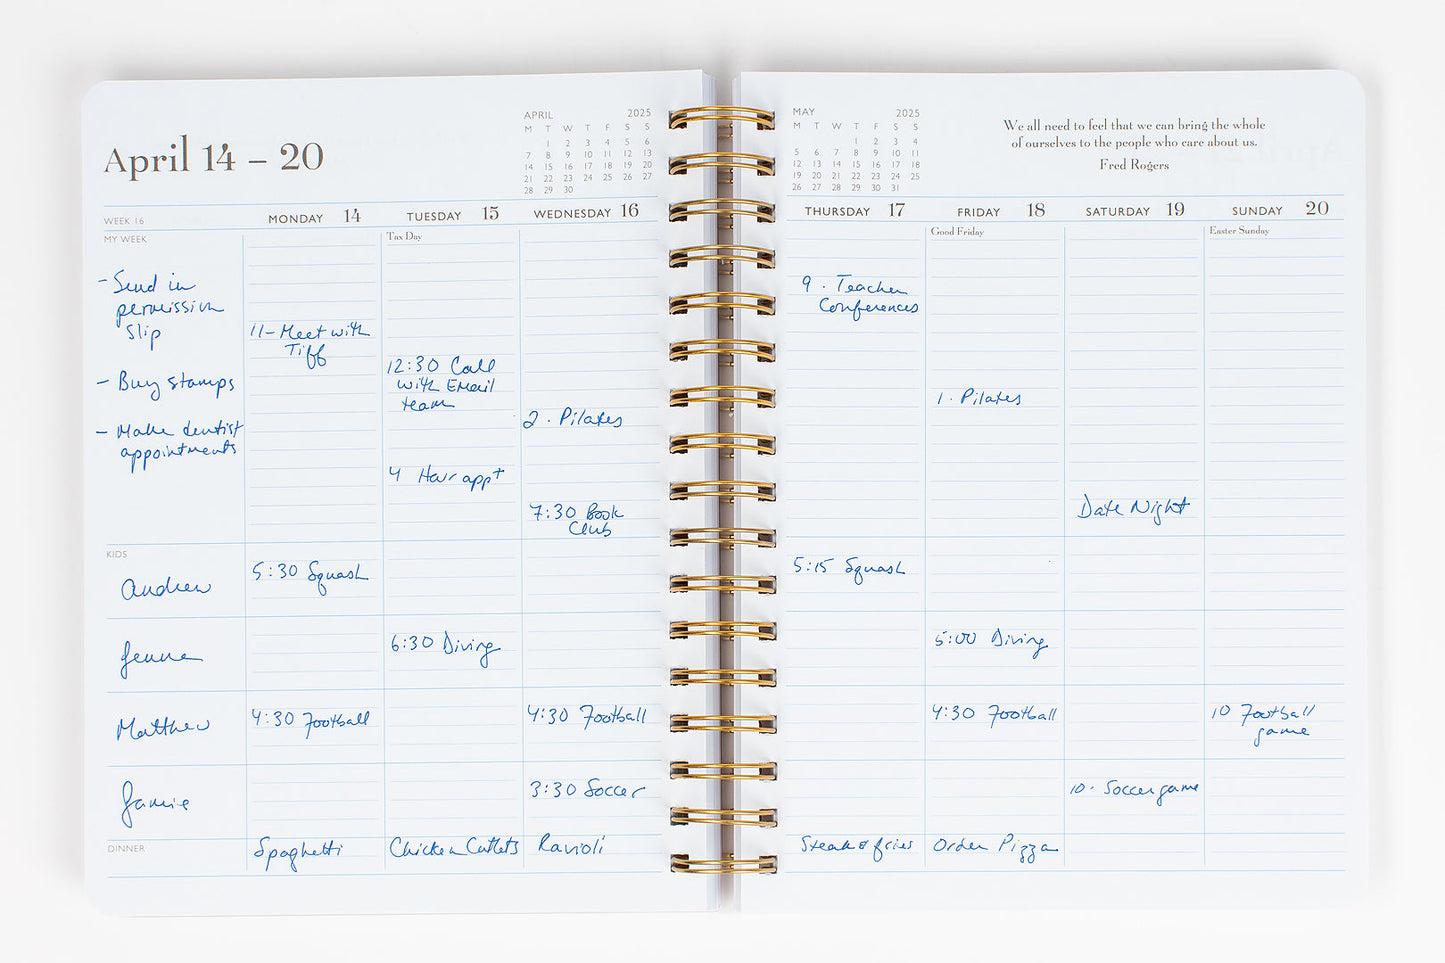 April 14 – 20
APRIL 2025
M T W T F S S
1 2 3 4 5 6
7 8 9 10 11 12 13
14 15 16 17 18 19 20
21 22 23 24 25 26 27
28 29 30
WEEK 16
MONDAY 14
TUESDAY 15
WEDNESDAY 16
MY WEEK
- Send in
permission
slip
- Buy stamps
- Make dentist
appointments
11- Meet with
Tiff
Tax Day
12:30 Call
with Email
team
4 Hair appt
2 . Pilates
7:30 Book
Club
KIDS
Andrew
5:30 Squash
Jenna
6:30 Diving
Matthew
4:30 Football
4:30 Football
Jamie
3:30 Soccer
DINNER
Spaghetti
Chicken Cutlets
Ravioli
MAY 2025
M T W T F S S
1 2 3 4
5 6 7 8 9 10 11
12 13 14 15 16 17 18
19 20 21 22 23 24 25
26 27 28 29 30 31
We all need to feel that we can bring the whole
of ourselves to the people who care about us.
Fred Rogers
THURSDAY 17
FRIDAY 18
SATURDAY 19
SUNDAY 20
9 . Teacher
Conferences
Good Friday
1 . Pilates
Date Night
Easter Sunday
5:15 Squash
5:00 Diving
4:30 Football
10 Football
game
10 . Soccer game
Steak & fries
Order Pizza